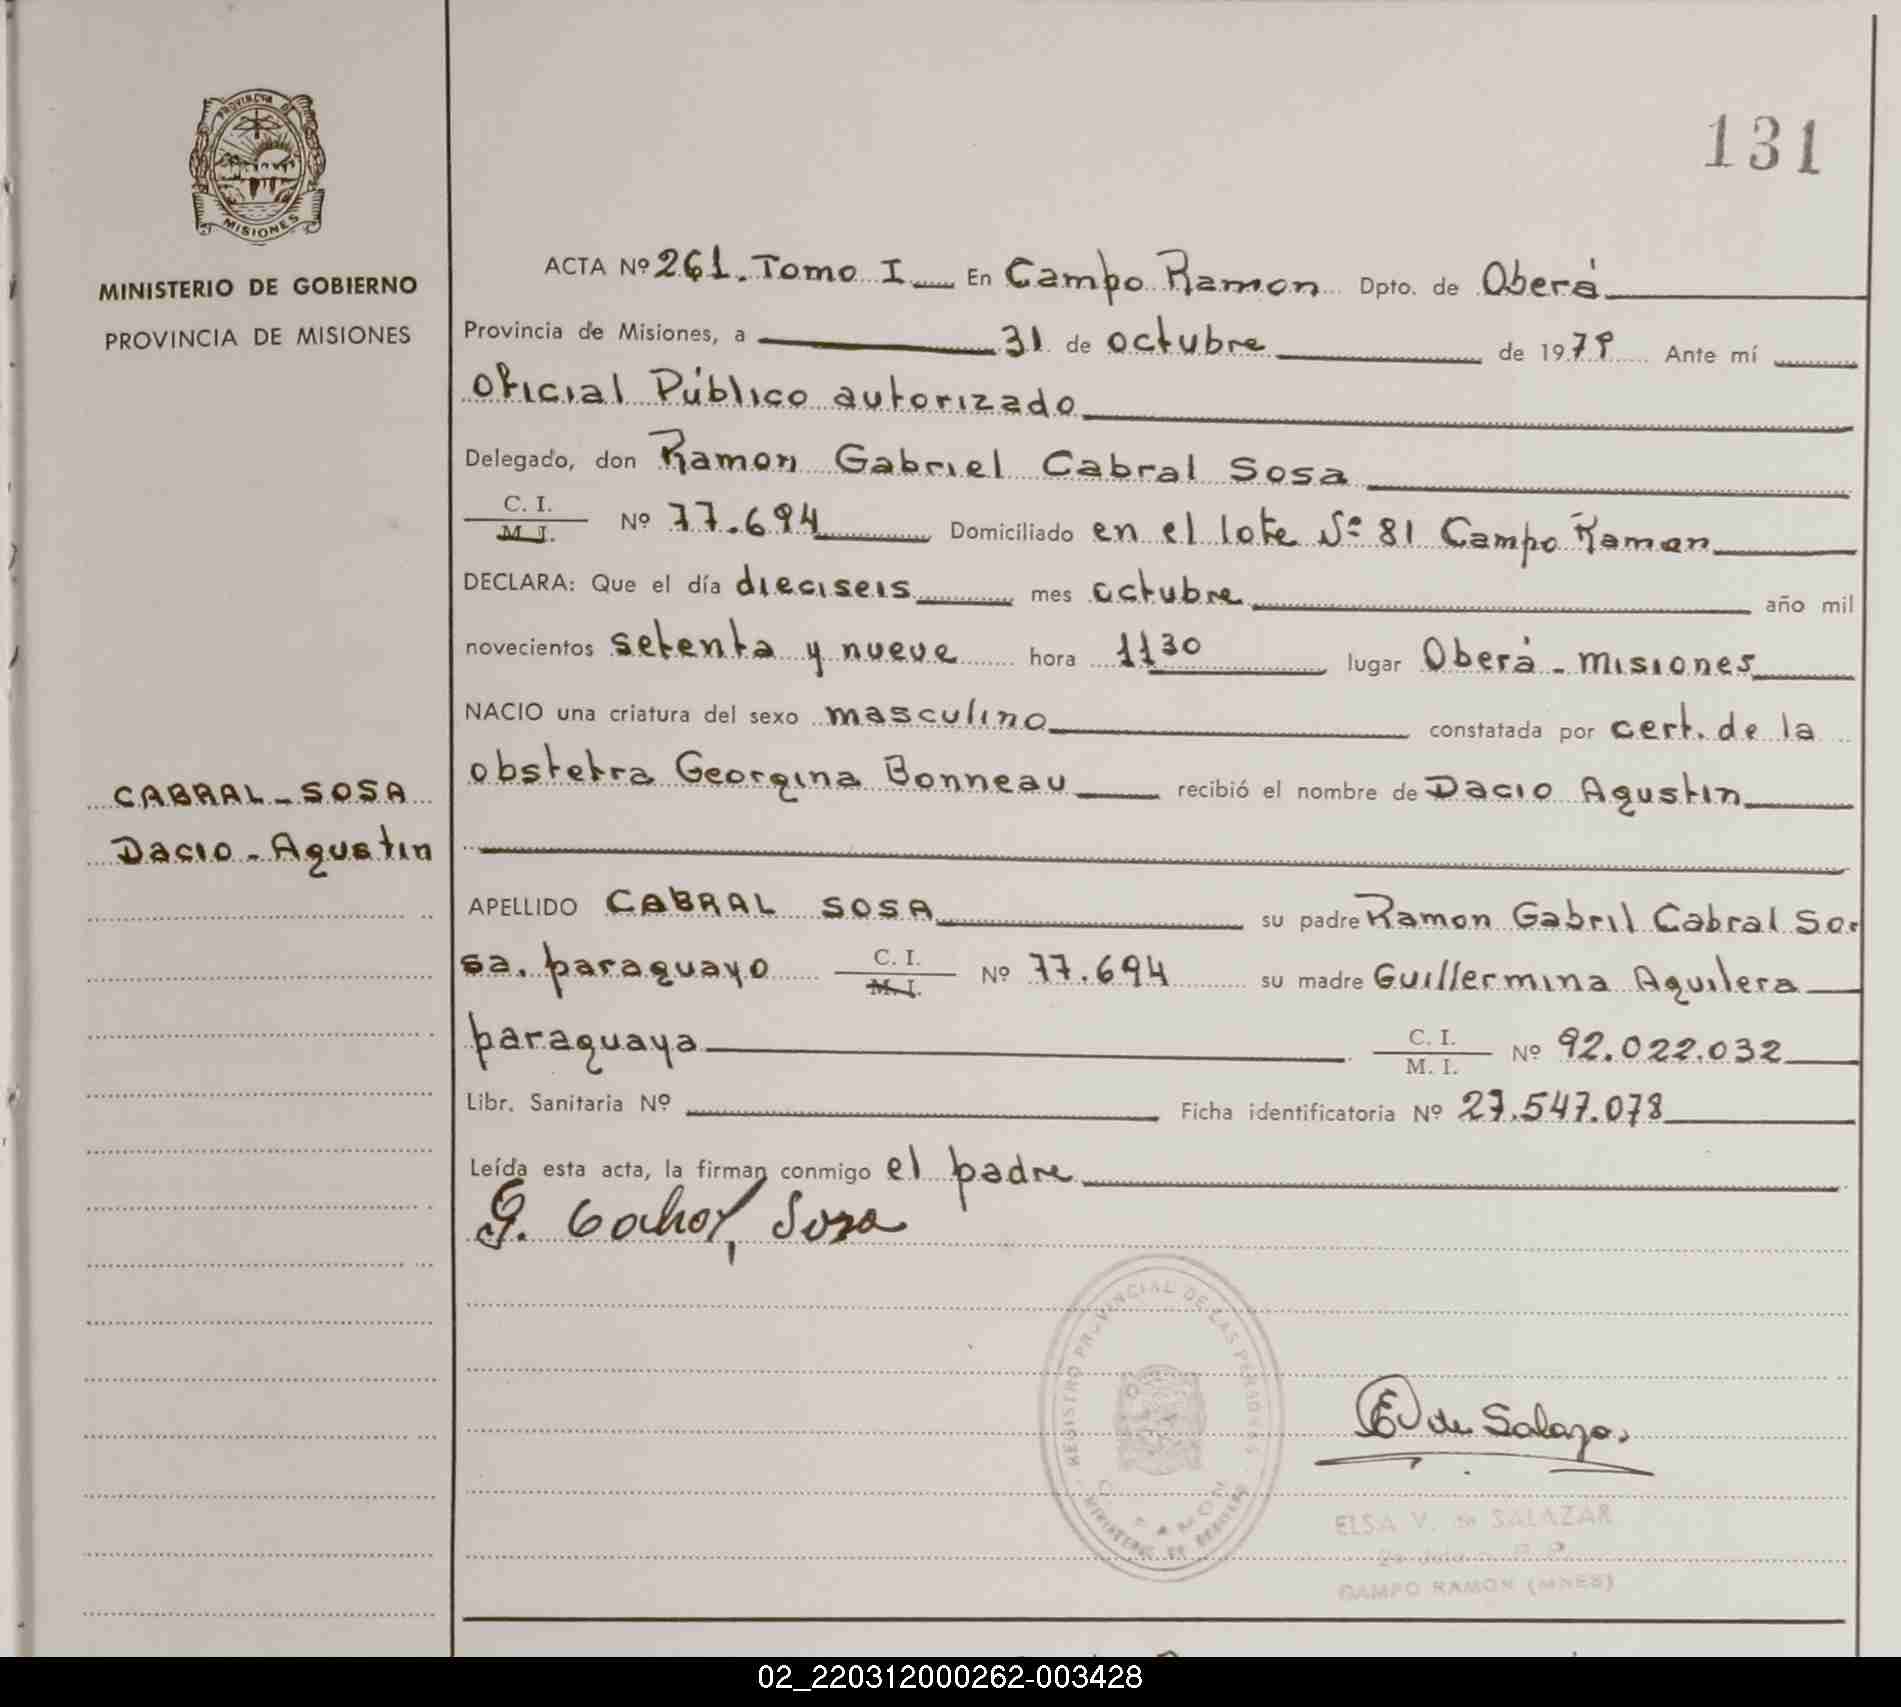 PROVINCIA DE
MISIONES
MINISTERIO DE GOBIERNO
PROVINCIA DE MISIONES
CABRAL - SOSA
Dacio - Agustin
131
ACTA Nº 261. Tomo I En Campo Ramon Dpto. de Oberá
Provincia de Misiones, a 31 de octubre de 1979 Ante mí
Oficial Público autorizado
Delegado, don Ramon Gabriel Cabral Sosa
C. I.
M. I. Nº 77.694 Domiciliado en el lote Nº 81 Campo Ramon
DECLARA: Que el día dieciseis mes octubre año mil
novecientos setenta y nueve hora 1130 lugar Oberá - misiones
NACIO una criatura del sexo masculino constatada por cert. de la
obstetra Georgina Bonneau recibió el nombre de Dacio Agustin
APELLIDO CABRAL SOSA su padre Ramon Gabril Cabral So-
sa. paraguayo C. I. M. I. Nº 77.694 su madre Guillermina Aguilera
paraguaya C. I. M. I. Nº 92.022.032
Libr. Sanitaria Nº Ficha identificatoria Nº 27.547.078
Leída esta acta, la firman conmigo el padre
G. Cabral Sosa
REGISTRO PROVINCIAL DE LAS PERSONAS
C. RAMON
MINISTERIO DE GOBIERNO
E V de Salazar
ELSA V. de SALAZAR
CAMPO RAMON (MNES)
02_220312000262-003428